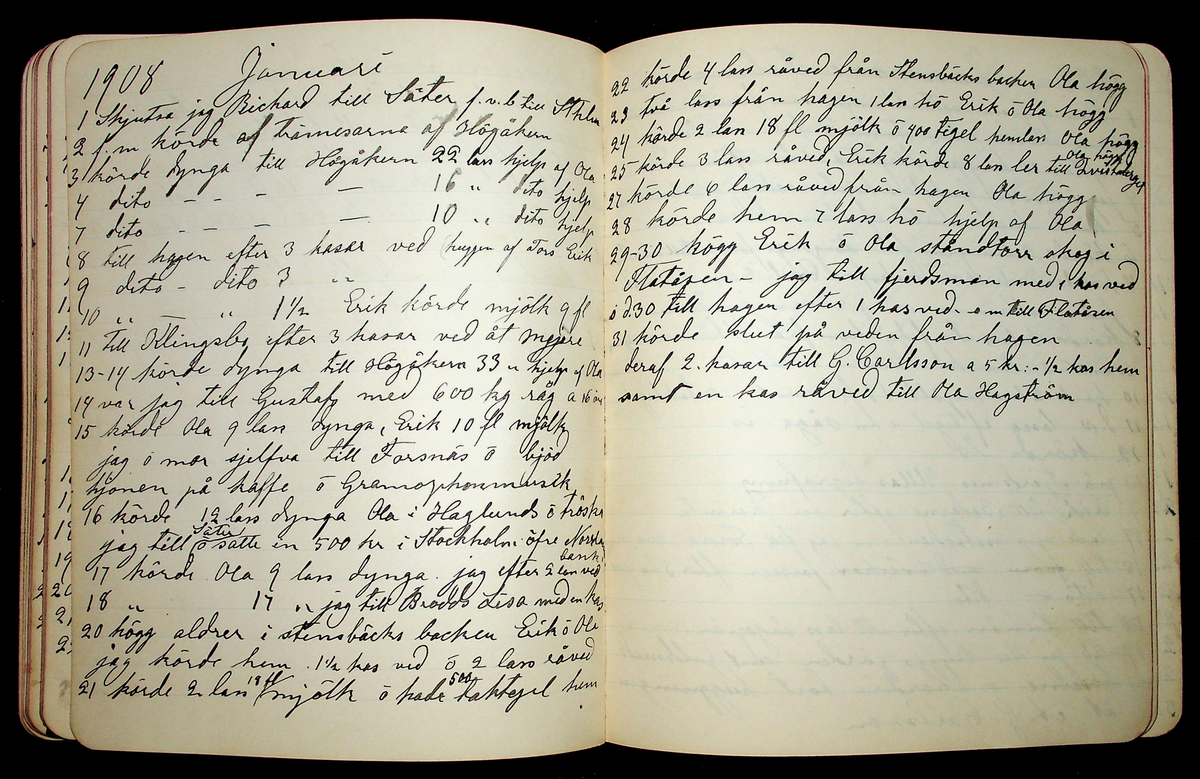 1908 Januari
1 Skjutsa jag Richard till Säter f.v.b till Sthlm
2 f.m körde af trännesarna af Högåkern
3 körde dynga till Högåkern 22 lass hjelp af Ola
4 dito - - - — 16 " dito hjelp
7 dito - - - — 10 " dito hjelp
8 till hagen efter 3 kasar ved (huggen af Erik
9 dito - dito 3 "
10 " - " 1½ Erik körde mjölk 9 fl
11 till Klingsbo efter 3 kasar ved åt mejere
13-14 körde dynga till Högåkern 33 " hjelp af Ola
14 var jag till Gustafs med 600 kg råg a 16 öre
15 körde Ola 9 lass dynga, Erik 10 fl mjölk
jag o mor sjelfva till Forsnäs o bjöd
hjonen på kaffe o Gramophonmusik
16 körde 12 lass dynga Ola i Haglunds o tröska
jag till Säter o satte in 500 kr i Stockholm öfre Norrlan
bank
17 körde Ola 9 lass dynga. jag efter 2 lass ved
18 " 17 " jag till Brodds Lisa med en kas
20 högg aldrer i stensbäcks backen Erik o Ola
jag körde hem 1½ kas ved o 2 lass råved
21 körde 2 lass 18 fl mjölk o hade 500 taktegel hem
22 körde 4 lass råved från Stensbäcks backen Ola högg
23 två lass från hagen 1 lass hö Erik o Ola högg
24 körde 2 lass 18 fl mjölk o 400 tegel hemlass Ola högg
25 körde 3 lass råved, Erik körde 8 lass ler till Qvistaberget Ola högg
27 körde 6 lass råved från hagen Ola högg
28 körde hem 7 lass hö hjelp af Ola
29-30 högg Erik o Ola ståndtorr skog i
Flatåsen - jag till fjerdsman med 1 kas ved
o d.30 till hagen efter 1 kas ved - e m till Flatåsen
31 körde slut på veden från hagen
deraf 2. kasar till G. Carlsson a 5 kr:- ½ kas hem
samt en kas råved till Ola Hagström